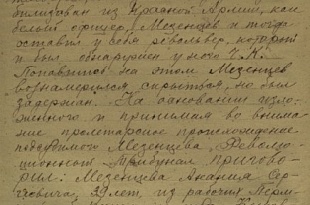 из Красной Армии, как
белый офицер, Мезенцев и тогда
оставил у себя револьвер, который
и был обнаружен у него Г.К.
на этом Мезенцев
вознамерился скрыться, но был
задержан. На основании изло-
женного и принимая во внима-
ние пролетарское происхождение
подсудимого Мезенцева, Револю-
ционный Трибунал пригово-
рил: Мезенцева Анания Сер-
геевича, 39 лет, из рабочих Перм-